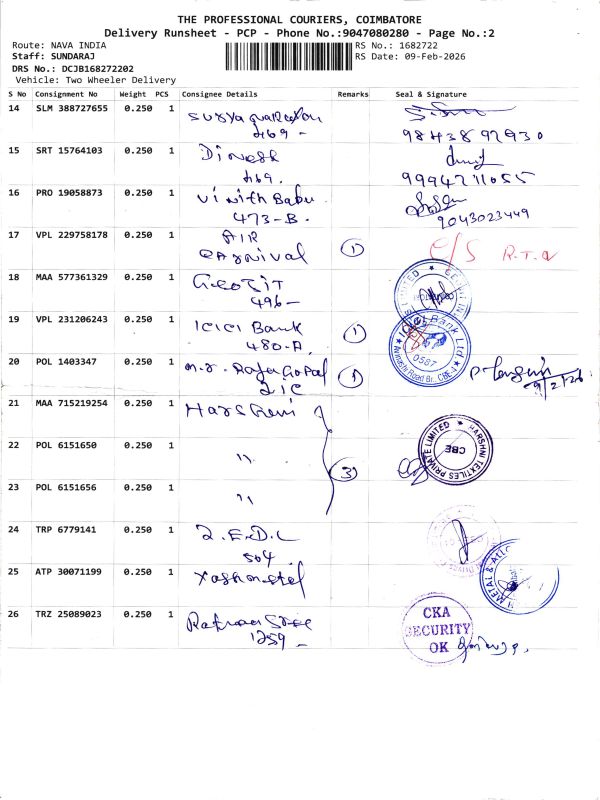 THE PROFESSIONAL COURIERS, COIMBATORE
Delivery Runsheet - PCP - Phone No.:9047080280 - Page No.:2
Route: NAVA INDIA
RS No.: 1682722
Staff: SUNDARAJ
RS Date: 09-Feb-2026
DRS No.: DCJB168272202
Vehicle: Two Wheeler Delivery
S No Consignment No Weight PCS Consignee Details Remarks Seal & Signature
14 SLM 388727655 0.250 1 Surya
469 -
98438 92930
15 SRT 15764103 0.250 1 Dinesh
469.
9994711055
16 PRO 19058873 0.250 1 Vinith Babu
473-B.
9043023449
17 VPL 229758178 0.250 1 AIR
Carnival
1
C/S R.T.O
18 MAA 577361329 0.250 1
496-
LIMITED
19 VPL 231206243 0.250 1 ICICI Bank
480-A
1
ICICI Bank Ltd.
0587
Avinashi Road Br. CBE-1
20 POL 1403347 0.250 1 M.S. Rajagopal
LIC
1
9/2/26
21 MAA 715219254 0.250 1 Harshini
HARSHINI TEXTILES PRIVATE LIMITED
CBE
22 POL 6151650 0.250 1 ''
3
23 POL 6151656 0.250 1 ''
24 TRP 6779141 0.250 1
504
25 ATP 30071199 0.250 1
METAL &
26 TRZ 25089023 0.250 1
1259 -
CKA
SECURITY
OK